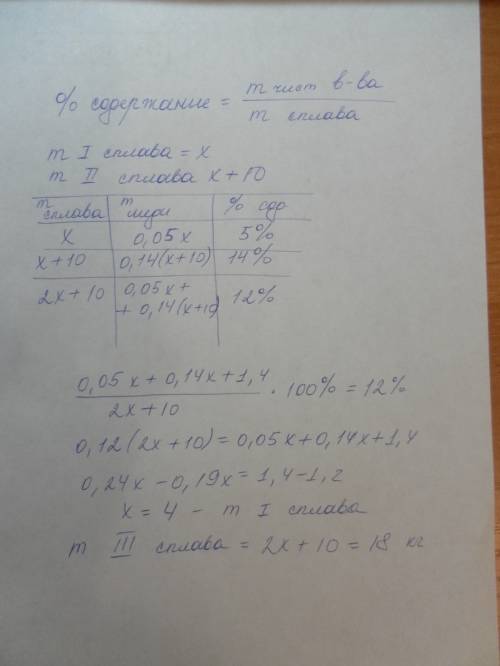 % содержание = m чист в-ва / m сплава
m I сплава = x
m II сплава x + 10
m сплава | m меди | % сдр
x | 0,05x | 5%
x+10 | 0,14(x+10) | 14%
2x+10 | 0,05x + + 0,14(x+10) | 12%
0,05x + 0,14x + 1,4 / 2x+10 · 100% = 12%
0,12(2x+10) = 0,05x + 0,14x + 1,4
0,24x - 0,19x = 1,4 - 1,2
x = 4 - m I сплава
m III сплава = 2x + 10 = 18 кг